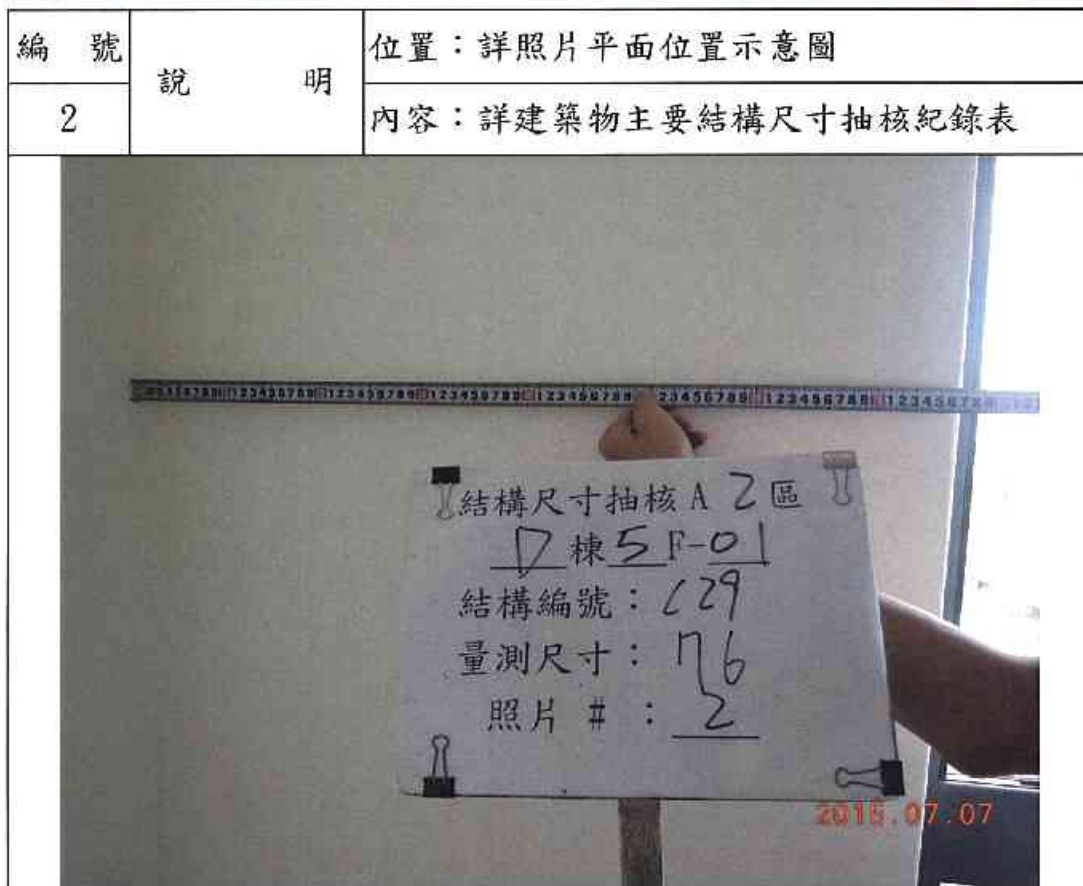 編 號
2
說 明
位置：詳照片平面位置示意圖
內容：詳建築物主要結構尺寸抽核紀錄表
結構尺寸抽核A 2區
D棟5F-01
結構編號：C29
量測尺寸：76
照片 #：2
2015.07.07